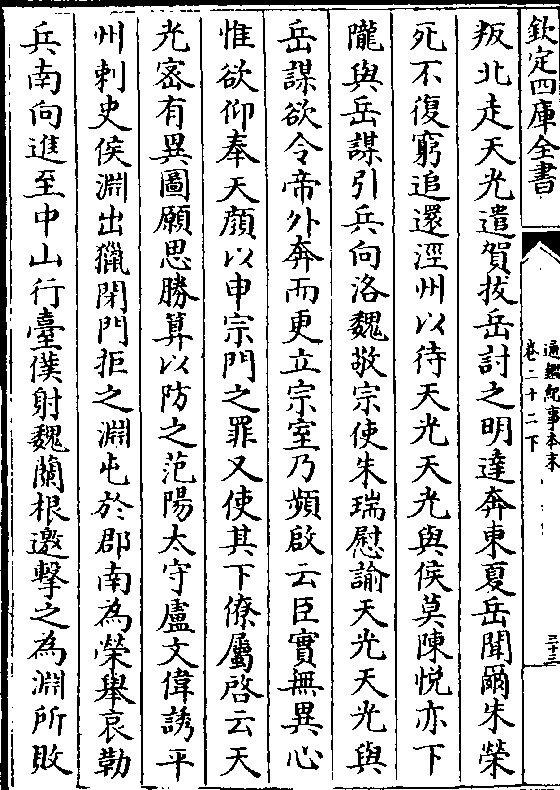 欽定四庫全書
通鑑紀事本末
卷二十二下
三十三
叛北走天光遣賀拔岳討之明達奔東夏岳聞爾朱榮
死不復窮追還涇州以待天光天光與侯莫陳悅亦下
隴與岳謀引兵向洛魏敬宗使朱瑞慰諭天光天光與
岳謀欲令帝外奔而更立宗室乃頻啟云臣實無異心
惟欲仰奉天顔以申宗門之罪又使其下僚屬啓云天
光宻有異圖願思勝算以防之范陽太守盧文偉誘平
州刺史侯淵出獵閉門拒之淵屯於郡南為榮舉哀勒
兵南向進至中山行臺僕射魏蘭根邀擊之為淵所敗